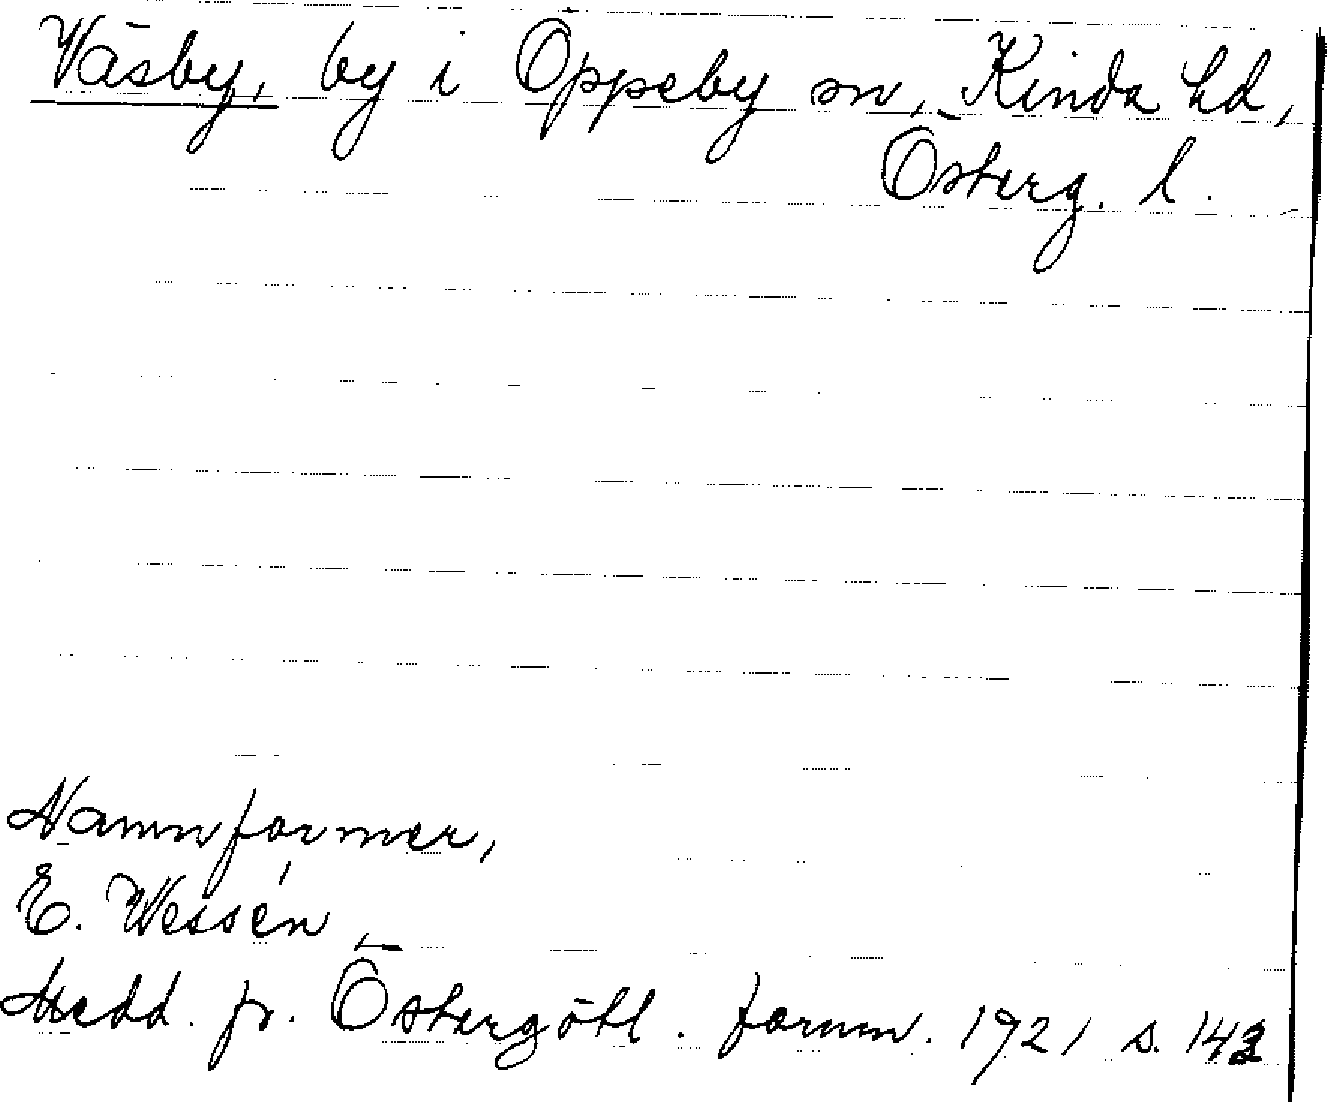 Väsby, by i Oppeby sn, Kinda hd,
Österg. l.
Namnformer,
E. Wessén,
Medd. fr. Östergötl. fornm. 1921 s.